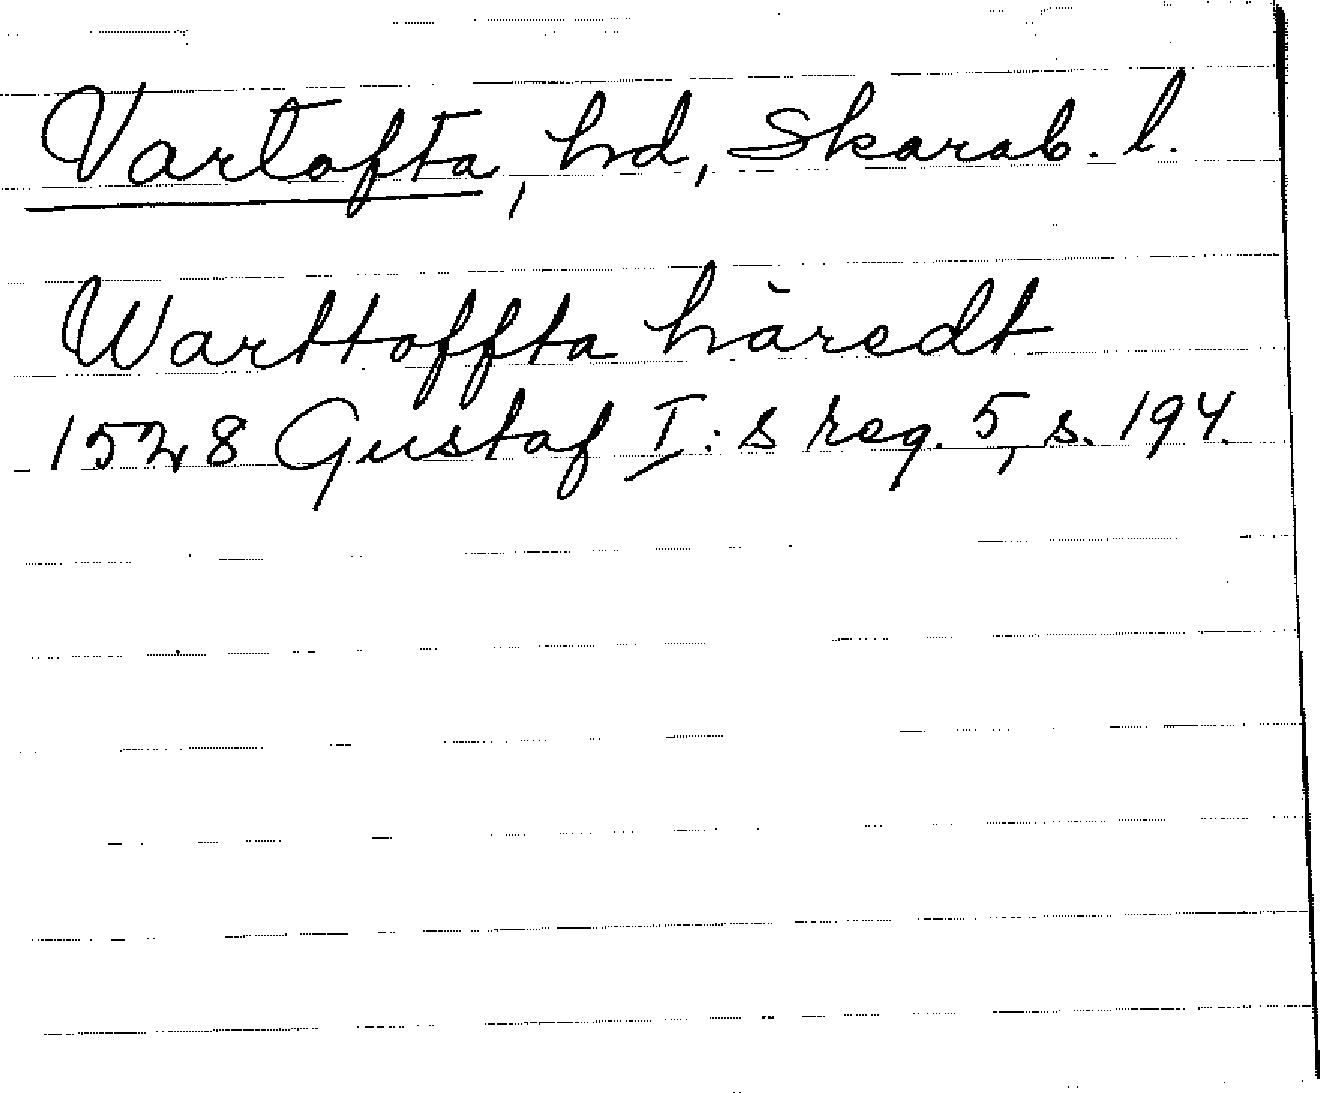 Vartofta, hd, Skarab. l.
Warttoffta häredt
1528 Gustaf I:s reg. 5, s. 194.